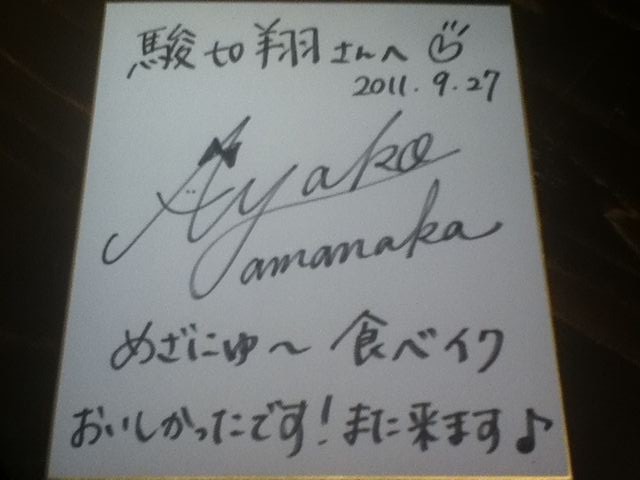 駿 切 翔さんへ
2011.9.27
Ayako
Yamanaka
めざにゅ〜 食べイク
おいしかったです!また来ます♪